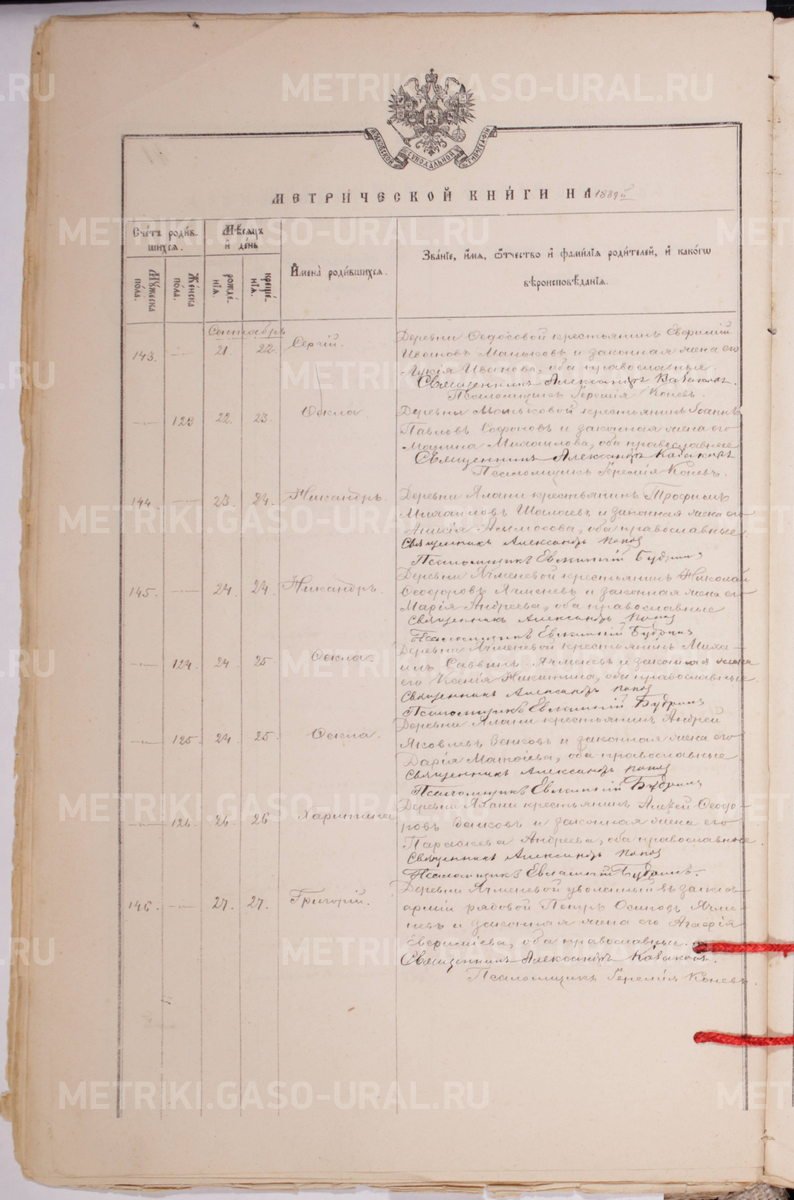 МЕТРИЧЕСКОЙ КНИГИ НА 1889 г.
Счетъ родив-
шихся.
Мужеска
пола.
Женска
пола.
Мѣсяцъ
и день
рожде-
нія.
креще-
нія.
Имена родившихся.
Званіе, имя, отчество и фамилія родителей, и какого
вѣроисповѣданія.
Сентябрь
143. 21 22. Сергій.
Деревни Ѳедосовой крестьянинъ Евфимій
Ивановъ и законная жена его
Ивановa, оба православные.
Священникъ Александръ
Псаломщикъ Іеремія Коневъ.
123 22. 23. Ѳекла.
Деревни крестьянинъ Іоаннъ
Павловъ и законная жена его
Марина Михаилова, оба православные
Священникъ Александръ
Псаломщикъ Іеремія Коневъ.
144 23. 24. Никандръ
Деревни Ялани крестьянинъ Трофимъ
Михаиловъ и законная жена его
оба православные
Священникъ Александръ Попов
Псаломщикъ Евлампій Будрин
145. 24. 24. Никандръ.
Деревни Ячменевой крестьянинъ Николай
Ѳеодоровъ Ячменевъ и законная жена его
Марія Андреева, оба православные
Священникъ Александръ Попов
Псаломщикъ Евлампій Будрин
124. 24 25 Ѳекла
Деревни Ячменевой крестьянинъ Миха-
илъ Саввинъ Ячменевъ и законная жена
его Ксенія Никитина, оба православные.
Священникъ Александръ Попов
Псаломщикъ Евлампій Будрин
125. 24. 25. Ѳекла.
Деревни Ялани крестьянинъ Андрей
Яковлевъ и законная жена его
Дарія оба православные
Священникъ Александръ Попов
Псаломщикъ Евлампій Будрин
126. 26. 26 Харитина
Деревни Ялани крестьянинъ Ѳеодо-
ровъ и законная жена его
Параскева Андреева, оба православные
Священникъ Александръ Попов
Псаломщикъ Евлампій Будрин.
146. 27. 27. Григорій.
Деревни Ячменевой уволенный въ запасъ
арміи рядовой Петръ Осиповъ Ячме-
невъ и законная жена его Агафія
оба православные.
Священникъ Александръ
Псаломщикъ Іеремія Коневъ.
METRIKI.GASO-URAL.RU